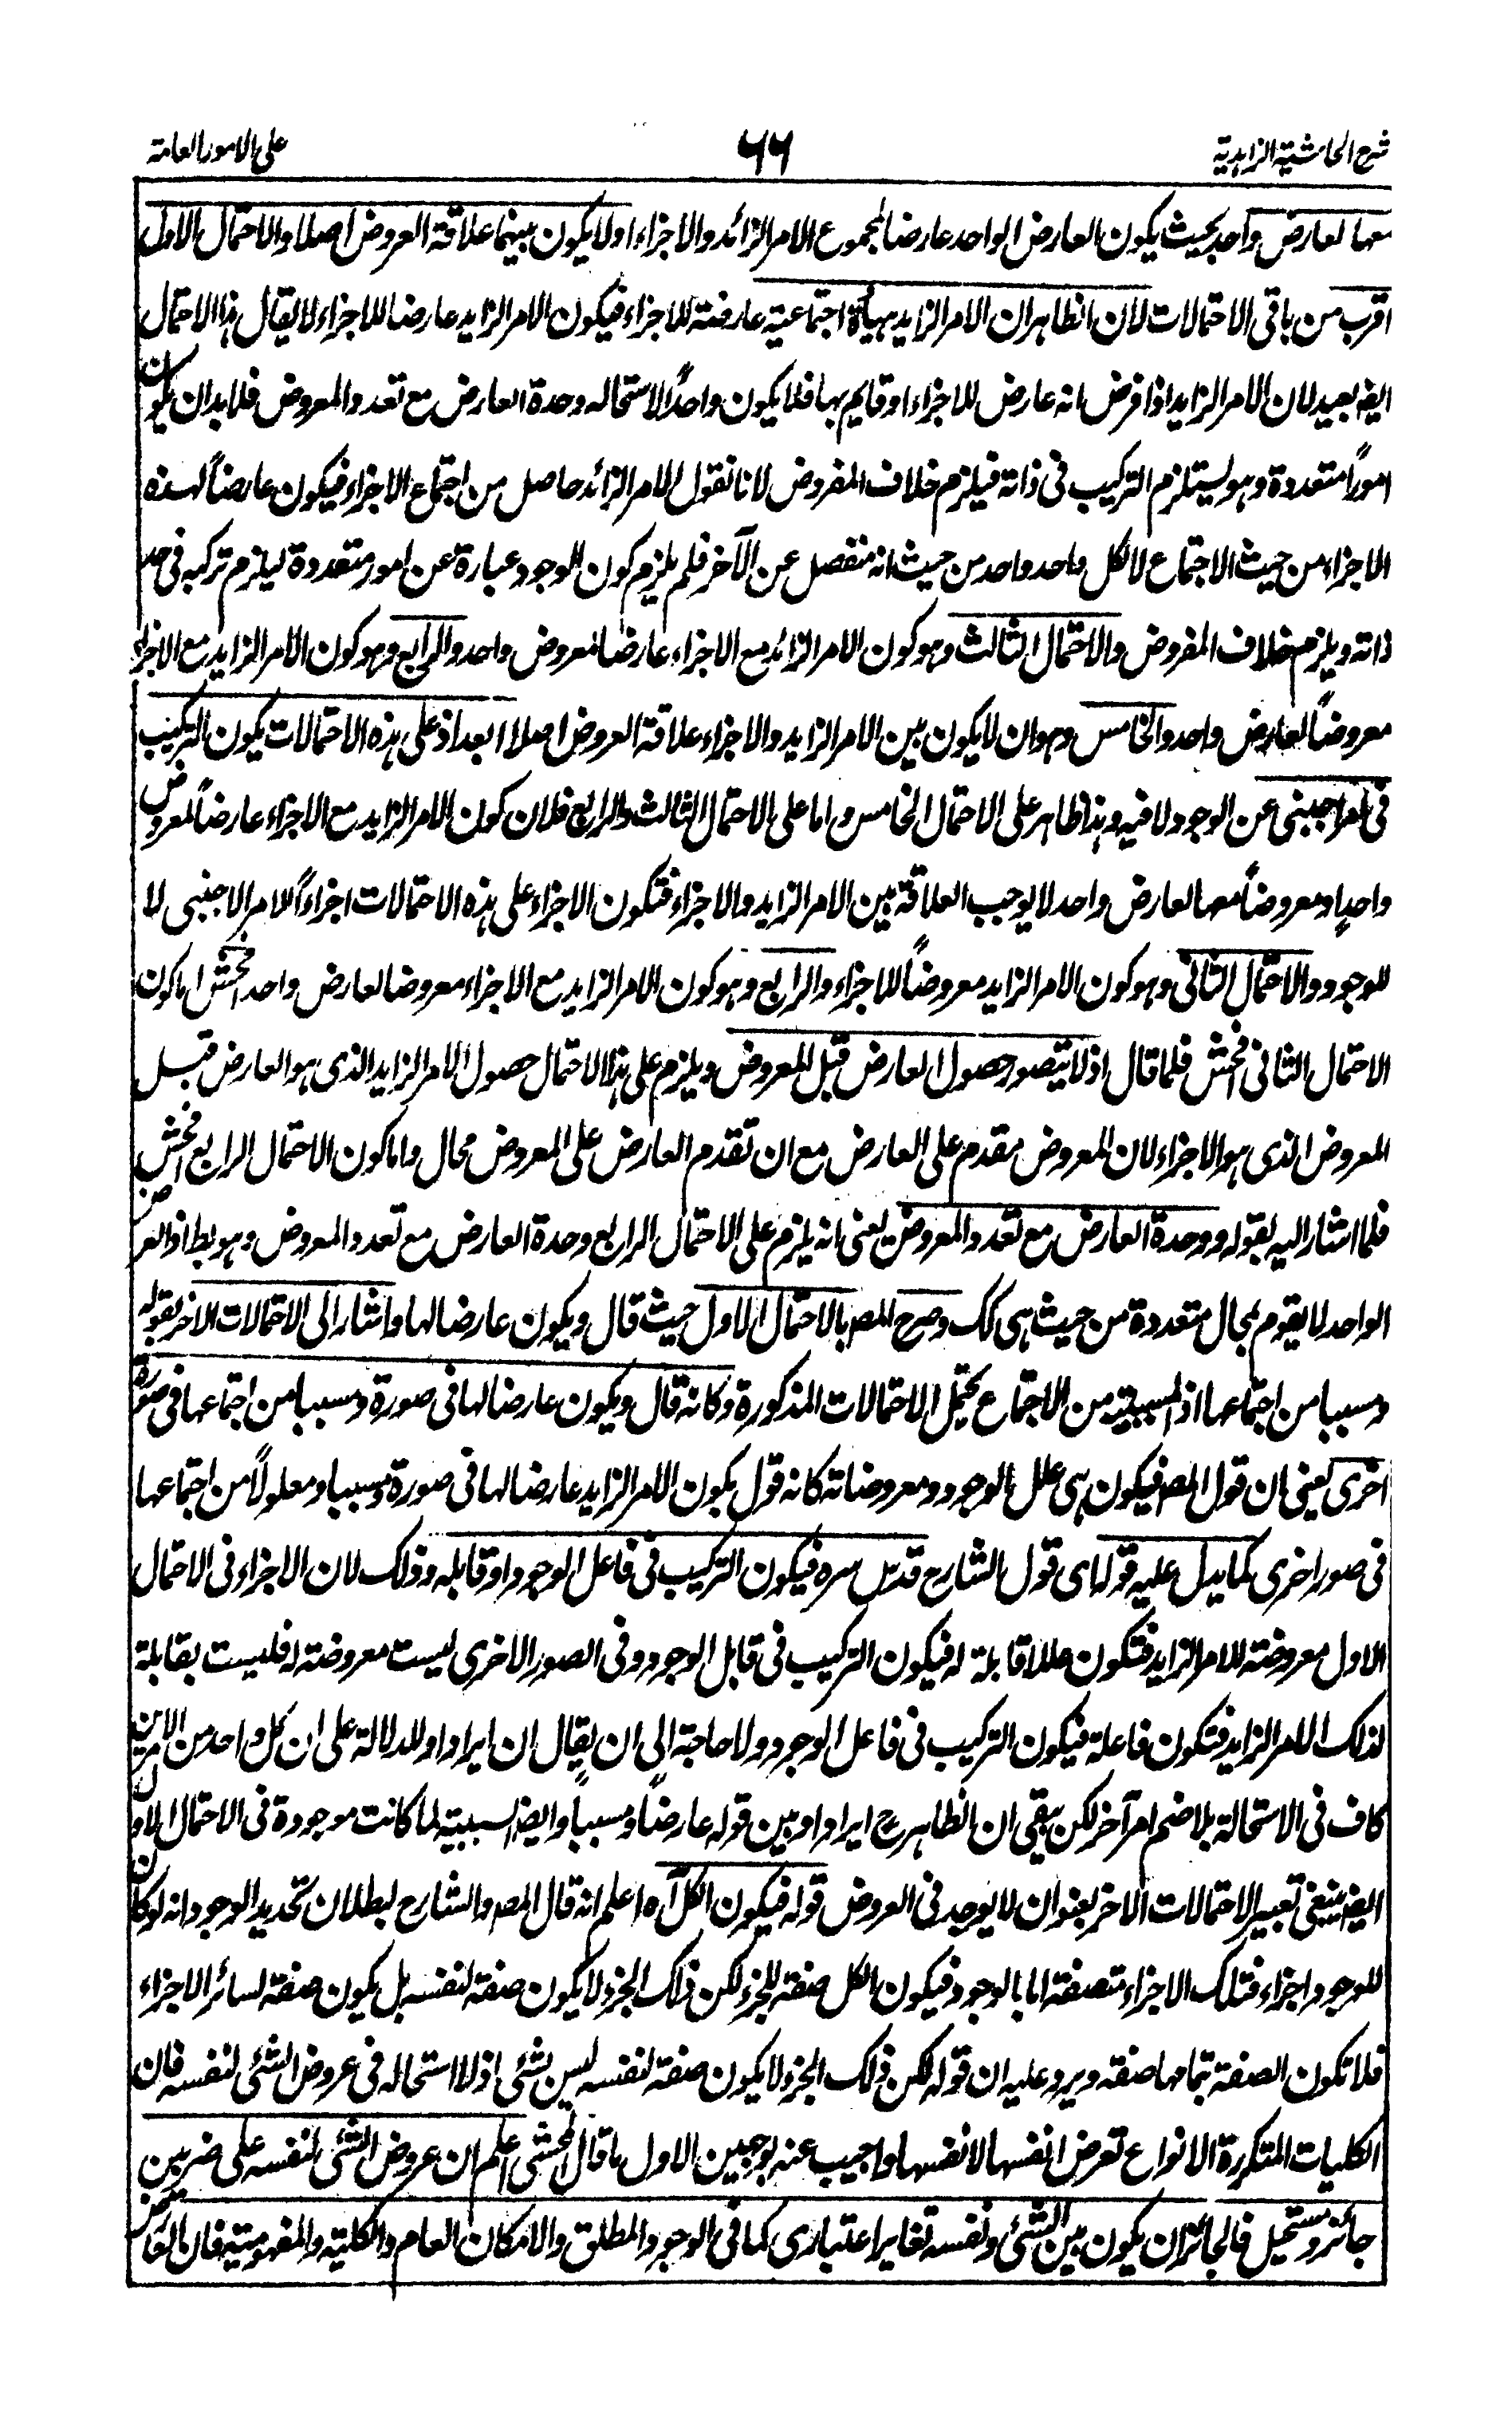 شرح الحاشية الزاهدية
٦٦
على الامور العامة
معها لعارض واحد بحيث يكون العارض الواحد عارضا لمجموع الامر الزائد والاجزاء او لا يكون بينهما علاقة العروض اصلا والاحتمال الاول
اقرب من باقى الاحتمالات لان الظاهر ان الامر الزايد هيأة اجتماعية عارضة للاجزاء فيكون الامر الزايد عارضا للاجزاء لا يقال هذا الاحتمال
ايضا بعيد لان الامر الزايد اذا فرض انه عارض للاجزاء او قايم بها فلا يكون واحدًا لاستحاله وحدة العارض مع تعدد المعروض فلا بد ان يكون
امورًا متعددة وهو يستلزم التركيب فى ذاته فيلزم خلاف المفروض لانا نقول الامر الزائد حاصل من اجتماع الاجزاء فيكون عارضاً لهذه
الاجزاء من حيث الاجتماع لا لكل واحد واحد من حيث انه منفصل عن الآخر فلم يلزم كون الوجود عبارة عن امور متعددة ليلزم تركبه فى حد
ذاته ويلزم خلاف المفروض والاحتمال الثالث وهو كون الامر الزائد مع الاجزاء عارضا لمعروض واحد والرابع وهو كون الامر الزايد مع الاجزاء
معروضاً لعارض واحد والخامس وهو ان لا يكون بين الامر الزايد والاجزاء علاقة العروض اصلا ابعد اذ على هذه الاحتمالات يكون التركيب
فى امر اجنبى عن الوجود لا فيه وهذا ظاهر على الاحتمال الخامس واما على الاحتمال الثالث والرابع فلان كون الامر الزايد مع الاجزاء عارضاً لمعروض
واحد او معروضاً معها لعارض واحد لا يوجب العلاقة بين الامر الزايد والاجزاء فتكون الاجزاء على هذه الاحتمالات اجزاءً لامر الاجنبى لا
للوجود والاحتمال الثانى وهو كون الامر الزايد معروضاً للاجزاء والرابع وهو كون الامر الزايد مع الاجزاء معروضا لعارض واحد افحش اما كون
الاحتمال الثانى افحش فلما قال اذ لا يتصور حصول العارض قبل المعروض ويلزم على هذا الاحتمال حصول الامر الزايد الذى هو العارض قبل
المعروض الذى هو الاجزاء لان المعروض مقدم على العارض مع ان تقدم العارض على المعروض محال واما كون الاحتمال الرابع افحش
فلما اشار اليه بقوله ووحدة العارض مع تعدد المعروض يعنى انه يلزم على الاحتمال الرابع وحدة العارض مع تعدد المعروض وهو بط اذ العرض
الواحد لا يقوم بمحال متعددة من حيث هى كك وصرح المصـ بالاحتمال الاول حيث قال ويكون عارضا لها واشار الى الاحتمالات الاخر بقوله
ومسببا من اجتماعها اذ المسببية من الاجتماع يحتمل الاحتمالات المذكورة وكانه قال ويكون عارضا لها فى صورة ومسببا من اجتماعها فى صورة
اخرى يعنى ان قول المصـ فيكون هى علل الوجود ومعروضاته كانه قول يكون الامر الزايد عارضا لها فى صورة ومسببا ومعلولاً من اجتماعها
فى صور اخرى كما يدل عليه قوله اى قول الشارح قدس سره فيكون التركيب فى فاعل الوجود او قابله وذلك لان الاجزاء فى الاحتمال
الاول معروضة للامر الزايد فتكون عللا قابلة له فيكون التركيب فى قابل الوجود وفى الصور الاخرى ليست معروضة له فليست بقابلة
لذلك الامر الزايد فتكون فاعلة فيكون التركيب فى فاعل الوجود ولا حاجة الى ان يقال ان ايراد او للدلالة على ان كل واحد من الامرين
كاف فى الاستحالة بلا ضم امر آخر لكن يبقى ان الظاهر ح ايراد او بين قوله عارضاً ومسبباً وايضا السببية لما كانت موجودة فى الاحتمال الاول
ايضا ينبغى تعبير الاحتمالات الاخر بعنوان لا يوجد فى العروض قوله فيكون الكل آه اعلم انه قال المصـ والشارح لبطلان تحديد الوجود انه لو كان
للوجود اجزاء فتلك الاجزاء متصفة اما بالوجود فيكون الكل صفة للجزء لكن ذلك الجزء لا يكون صفة لنفسه بل يكون صفة لسائر الاجزاء
فلا تكون الصفة بتمامها صفة ويرد عليه ان قوله لكن ذلك الجزء لا يكون صفة لنفسه ليس بشئ اذ لا استحاله فى عروض الشئ لنفسه فان
الكليات المتكررة الانواع تعرض انفسها لانفسها واجيب عنه بوجهين الاول ما قال المحشى اعلم ان عروض الشئ لنفسه على ضربين
جائز ومستحيل فالجائز ان يكون بين الشئ ونفسه تغاير اعتبارى كما فى الوجود المطلق والامكان العام والكلية والمفهومية فان